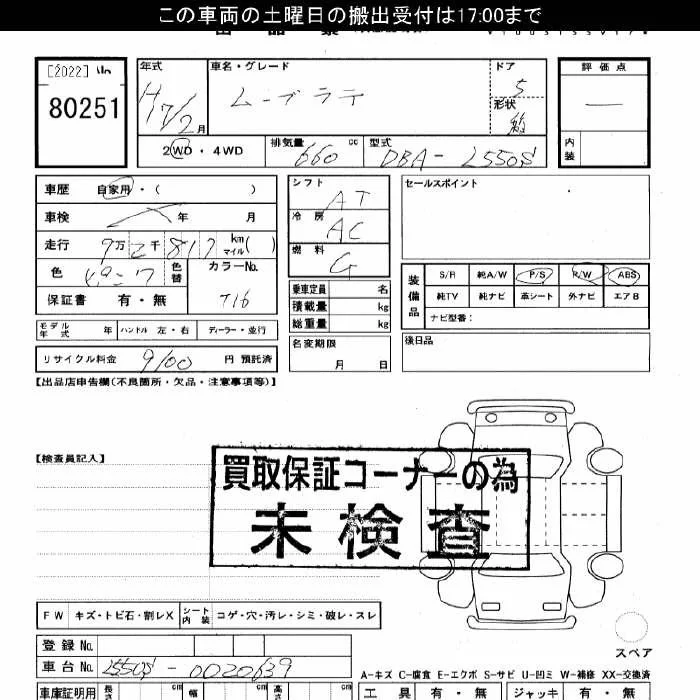 この車両の土曜日の搬出受付は17:00まで
[2022]
80251
年式 車名・グレード ドア 評価点
H17/2月 ムーブラテ 5
形状
2WD・4WD 排気量 660 cc 型式 DBA-L550S
内装
車歴 自家用・( ) シフト AT セールスポイント
車検 年 月 冷房 AC
走行 9万2千817 km マイル( ) 燃料 G
色 ピンク 色替 カラーNo. T16
保証書 有・無
乗車定員 名
積載量 kg
総重量 kg
装備品 S/R 純A/W P/S R/W ABS
純TV 純ナビ 革シート 外ナビ エアB
ナビ型番:
モデル年式 年 ハンドル 左・右 ディーラー・並行
名変期限 月 日
後日品
リサイクル料金 9100 円 預託済
【出品店申告欄(不良箇所・欠品・注意事項等)】
【検査員記入】
買取保証コーナーの為
未検査
FW キズ・トビ石・割レX シート内装 コゲ・穴・汚レ・シミ・破レ・スレ
スペア
登録 No.
車台 No. L550S-0020639
A-キズ C-腐食 E-エクボ S-サビ U-凹ミ W-補修 XX-交換済
車庫証明用 長さ cm 幅 cm 高さ cm 工具 有・無 ジャッキ 有・無